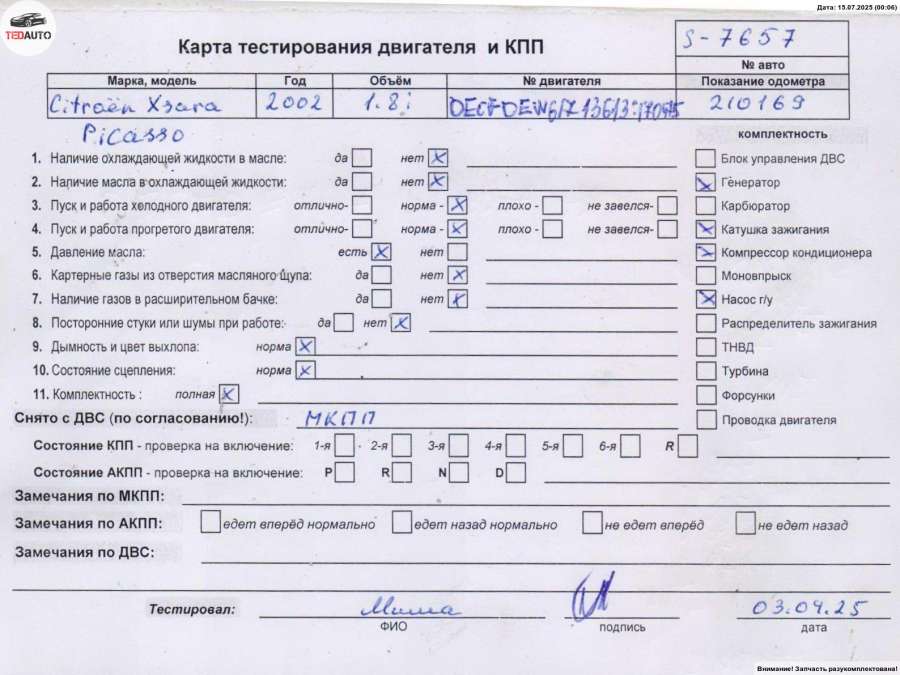 Дата: 15.07.2025 (00:06)
TEDAUTO
Карта тестирования двигателя и КПП
S-7657
№ авто
Марка, модель Год Объём № двигателя Показание одометра
Citroën Xsara 2002 1.8i 210169
Picasso
комплектность
1. Наличие охлаждающей жидкости в масле: да нет X Блок управления ДВС
2. Наличие масла в охлаждающей жидкости: да нет X Генератор
3. Пуск и работа холодного двигателя: отлично- норма - X плохо - не завелся- Карбюратор
4. Пуск и работа прогретого двигателя: отлично- норма - X плохо - не завелся- Катушка зажигания
5. Давление масла: есть X нет Компрессор кондиционера
6. Картерные газы из отверстия масляного щупа: да нет X Моновпрыск
7. Наличие газов в расширительном бачке: да нет X Насос г/у
8. Посторонние стуки или шумы при работе: да нет X Распределитель зажигания
9. Дымность и цвет выхлопа: норма X ТНВД
10. Состояние сцепления: норма X Турбина
11. Комплектность : полная X Форсунки
Снято с ДВС (по согласованию!): МКПП Проводка двигателя
Состояние КПП - проверка на включение: 1-я 2-я 3-я 4-я 5-я 6-я R
Состояние АКПП - проверка на включение: P R N D
Замечания по МКПП:
Замечания по АКПП: едет вперёд нормально едет назад нормально не едет вперёд не едет назад
Замечания по ДВС:
Тестировал: Миша 03.04.25
ФИО подпись дата
Внимание! Запчасть разукомплектована!